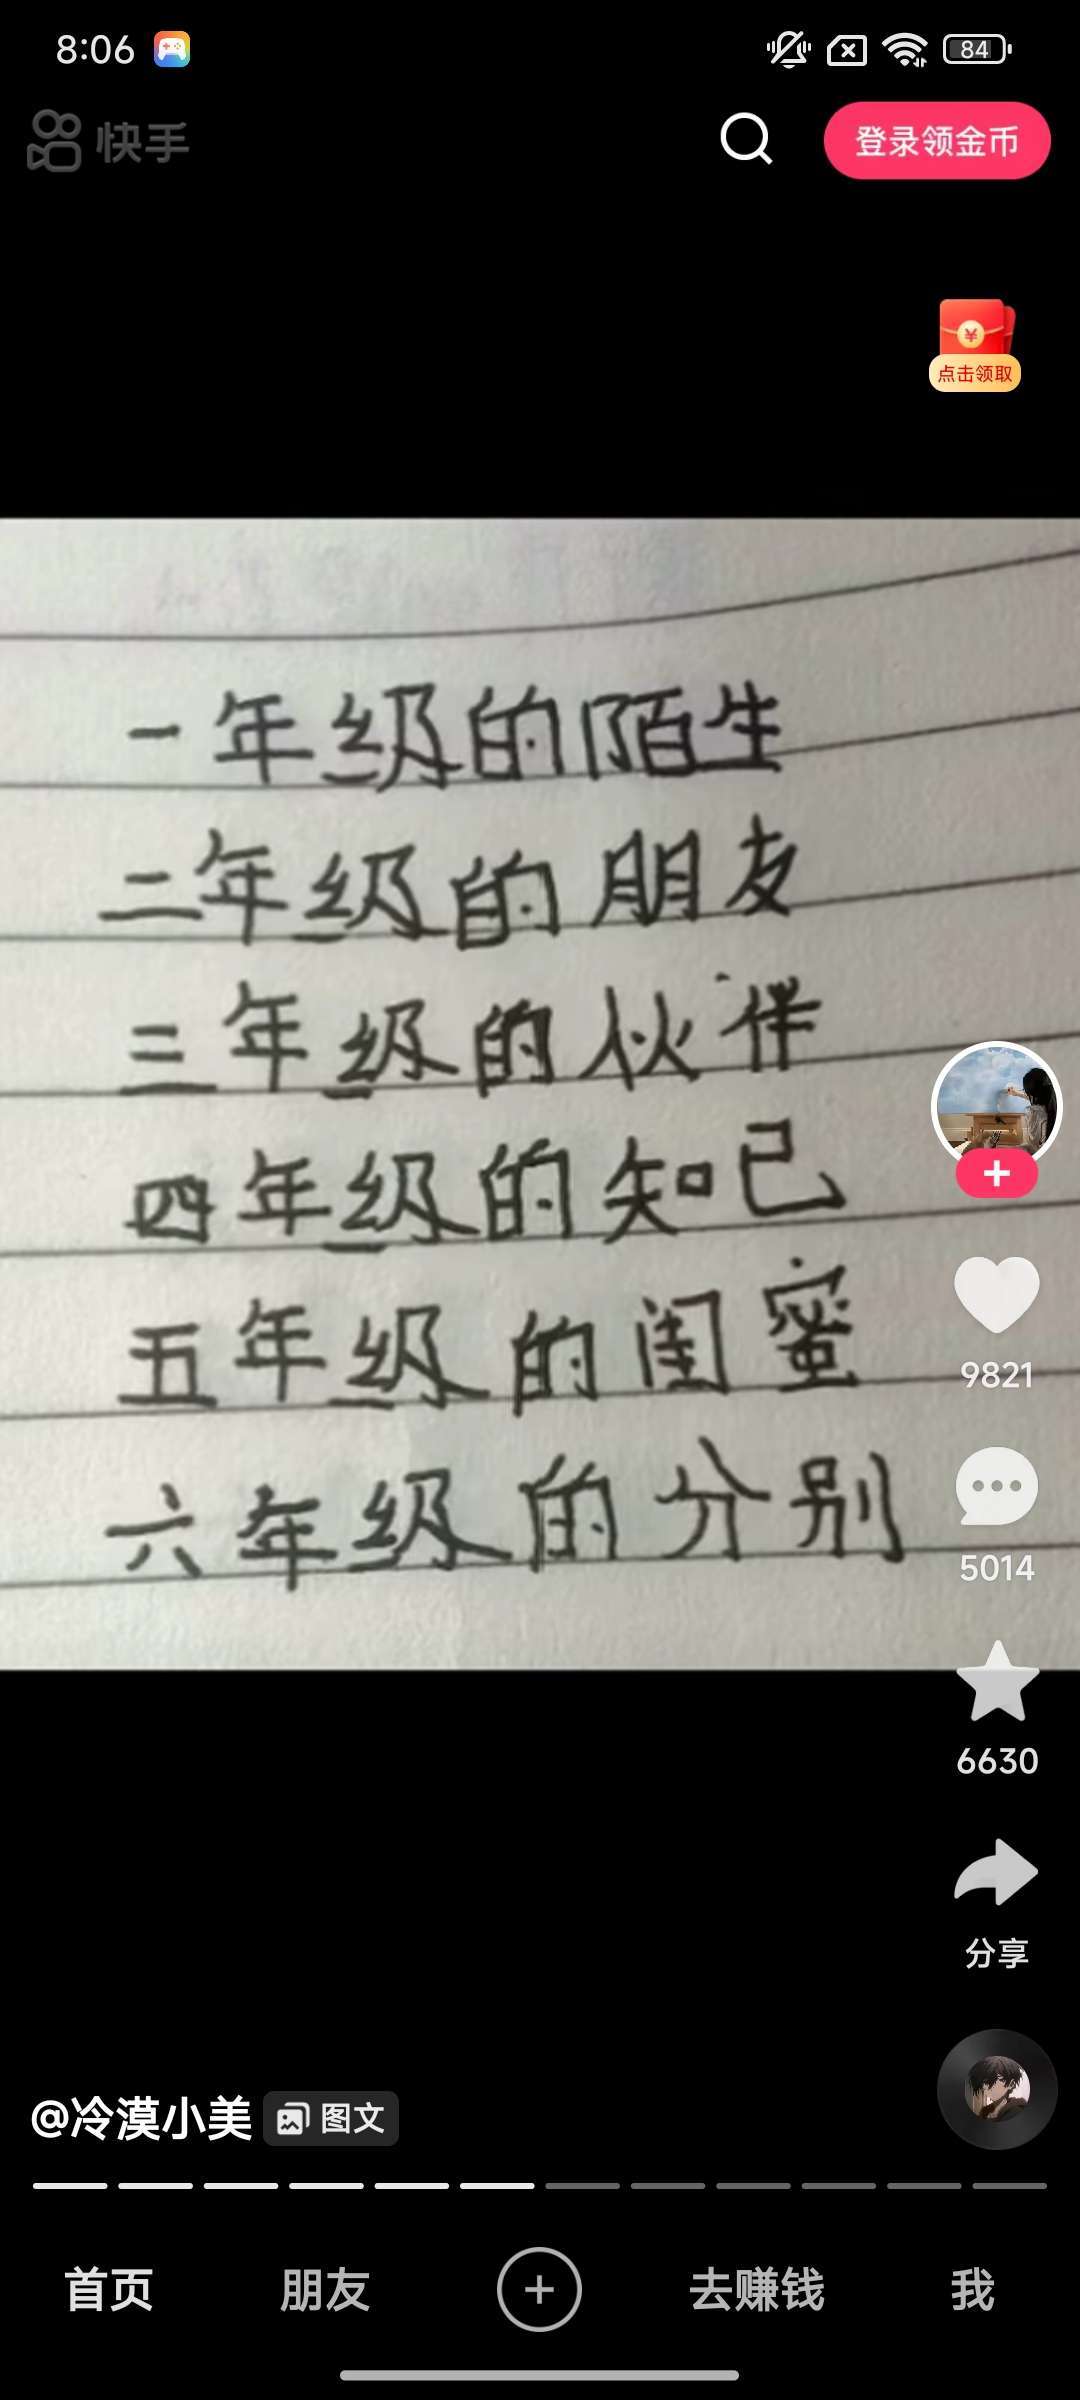 8:06
84
快手
登录领金币
¥
点击领取
一年级的陌生
二年级的朋友
三年级的伙伴
四年级的知己
五年级的闺蜜
六年级的分别
9821
5014
6630
分享
@冷漠小美
图文
首页
朋友
去赚钱
我